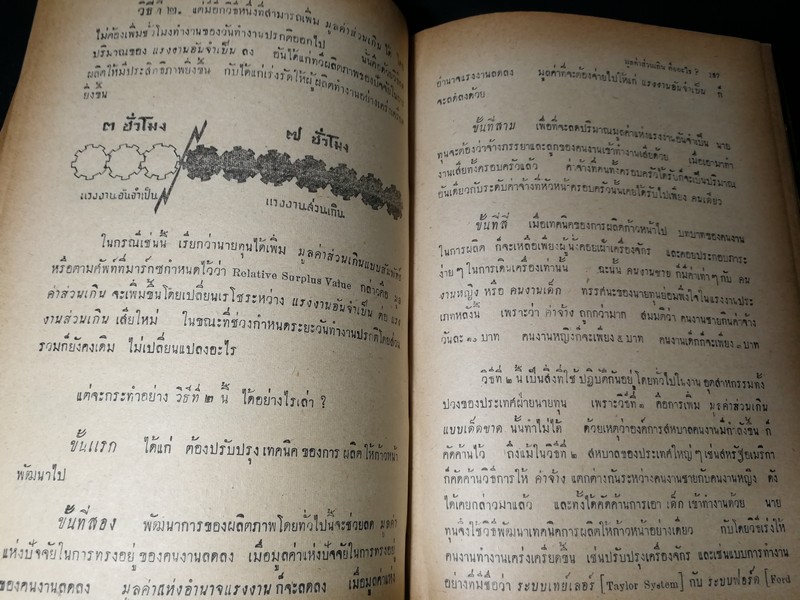 วิธีที่ ๒. แต่มีอีกวิธีหนึ่งที่สามารถเพิ่ม มูลค่าส่วนเกิน ได้
ไม่ต้องเพิ่มชั่วโมงทำงานของวันทำงานปรกติออกไป
ปริมาณของ แรงงานอันจำเป็น ลง อันได้แก่ทวีผลิตภาพของปัจจัยในการ
ผลิตให้มีประสิทธิภาพยิ่งขึ้น กับได้แก่เร่งรัดให้ผู้ผลิตทำงานอย่างเคร่งเครียด
ยิ่งขึ้น
๓ ชั่วโมง
๗ ชั่วโมง
แรงงานอันจำเป็น
แรงงานส่วนเกิน
ในกรณีเช่นนี้ เรียกว่านายทุนได้เพิ่ม มูลค่าส่วนเกินแบบสัมพัทธ์
หรือตามศัพท์ที่มาร์กซกำหนดไว้ว่า Relative Surplus Value กล่าวคือ มูล
ค่าส่วนเกิน จะเพิ่มขึ้นโดยเปลี่ยนเรโชระหว่าง แรงงานอันจำเป็น ต่อ แรง
งานส่วนเกิน เสียใหม่ ในขณะที่ช่วงกำหนดระยะวันทำงานปรกติโดยส่วน
รวมก็ยังคงเดิม ไม่เปลี่ยนแปลงอะไร
แต่จะกระทำอย่าง วิธีที่ ๒ นี้ ได้อย่างไรเล่า ?
ขั้นแรก ได้แก่ ต้องปรับปรุง เทคนิค ของการ ผลิต ให้ก้าวหน้า
พัฒนาไป
ขั้นที่สอง พัฒนาการของผลิตภาพโดยทั่วไปนั้นจะช่วยลด มูลค่า
แห่งปัจจัยในการทรงอยู่ ของคนงานลดลง เมื่อมูลค่าแห่งปัจจัยในการทรงอยู่
ของคนงานลดลง มูลค่าแห่งอำนาจแรงงาน ก็จะลดลง เมื่อมูลค่าแห่ง
มูลค่าส่วนเกิน คืออะไร ? 187
อำนาจแรงงานลดลง มูลค่าที่จะต้องจ่ายไปให้แก่ แรงงานอันจำเป็น ก็
จะลดลงด้วย
ขั้นที่สาม เพื่อที่จะลดปริมาณมูลค่าแห่งแรงงานอันจำเป็น นาย
ทุนจะต้องว่าจ้างภรรยาและลูกของคนงานเข้าทำงานเสียด้วย เมื่อเอามาทำ
งานเสียทั้งครอบครัวแล้ว ค่าจ้างที่คนทั้งครอบครัวได้รับก็จะเป็นปริมาณ
อันเดียวกับระดับค่าจ้างที่หัวหน้าครอบครัวนั้นเคยได้รับไปเพียง คนเดียว
ขั้นที่สี่ เมื่อเทคนิคของการผลิตก้าวหน้าไป บทบาทของคนงาน
ในการผลิต ก็จะเหลือเพียงผู้นั่งคอยเฝ้าเครื่องจักร และคอยประกอบภาระ
ง่ายๆ ในการเดินเครื่องเท่านั้น ฉะนั้น คนงานชาย ก็มีค่าเท่าๆ กับ คน
งานหญิง หรือ คนงานเด็ก ทรรศนะของนายทุนย่อมพึงใจในแรงงานประ
เภทหลังนี้ เพราะว่า ค่าจ้าง ถูกกว่ามาก สมมติว่า คนงานชายกินค่าจ้าง
วันละ ๑๐ บาท คนงานหญิงก็จะเพียง ๕ บาท คนงานเด็กก็จะเพียง ๑ บาท
วิธีที่ ๒ นี้ เป็นสิ่งที่ใช้ ปฏิบัติกันอยู่ โดยทั่วไปในงาน อุตสาหกรรมทั้ง
ปวงของประเทศฝ่ายนายทุน เพราะวิธีที่ ๑ คือการเพิ่ม มูลค่าส่วนเกิน
แบบเด็ดขาด นั้นทำไม่ได้ ด้วยเหตุว่าองค์การสหบาลคนงานมีกำลังขึ้น ก็
คัดค้านไว้ ถึงแม้ในวิธีที่ ๒ สหบาลของประเทศใหญ่ๆ เช่นสหรัฐอเมริกา
ก็คัดค้านวิธีการให้ ค่าจ้าง แตกต่างกันระหว่างคนงานชายกับคนงานหญิง ดัง
ได้เคยกล่าวมาแล้ว และทั้งได้คัดค้านการเอา เด็ก เข้าทำงานด้วย นาย
ทุนจึงใช้วิธีพัฒนาเทคนิคการผลิตให้ก้าวหน้าอย่างเดียว กับโดยวิธีเร่งให้
คนงานทำงานเคร่งเครียดขึ้น เช่นปรับปรุงเครื่องจักร และเช่นแบบการทำงาน
อย่างที่มีชื่อว่า ระบบเทย์เลอร์ [Taylor System] กับ ระบบฟอร์ด [Ford